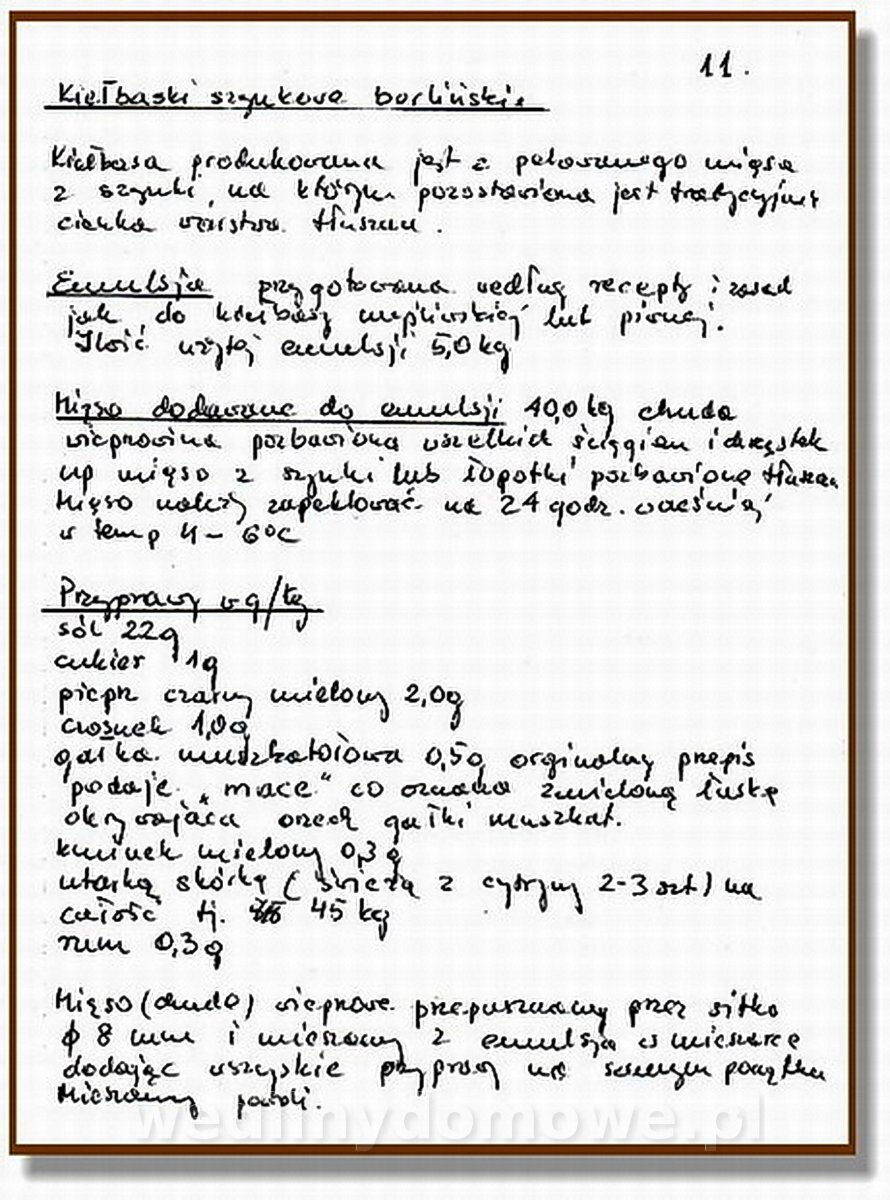 11.
Kiełbaski szynkowe berlińskie
Kiełbasa produkowana jest z peklowanego mięsa
z szynki, na którym pozostawiona jest tradycyjnie
cienka warstwa tłuszczu.
Emulsja przygotowana według recepty i zasad
jak do kiełbasy myśliwskiej lub piwnej.
Ilość użytej emulsji 5,0 kg
Mięso dodawane do emulsji 40,0 kg chuda
wieprowina pozbawiona wszelkich ścięgien i chrząstek
np mięso z szynki lub łopatki pozbawione tłuszczu
Mięso należy zapeklować na 24 godz. wcześniej
w temp 4 - 6°C
Przyprawy w g/kg
sól 22g
cukier 1g
pieprz czarny mielony 2,0g
czosnek 1,0g
gałka muszkatołowa 0,5g orginalny przepis
podaje "mace" co oznacza zmieloną łuskę
okrywająca orzech gałki muszkat.
kminek mielony 0,3 g
utartą skórkę (świeżą z cytryny 2-3 szt) na
całość tj. 45 kg
rum 0,3 g
Mięso (chude) wieprowe przepuszczamy przez sitko
φ 8 mm i mieszamy z emulsją w mieszarce
dodając wszyskie przyprawy na samym początku
Mieszamy powoli.
wedlinydomowe.pl